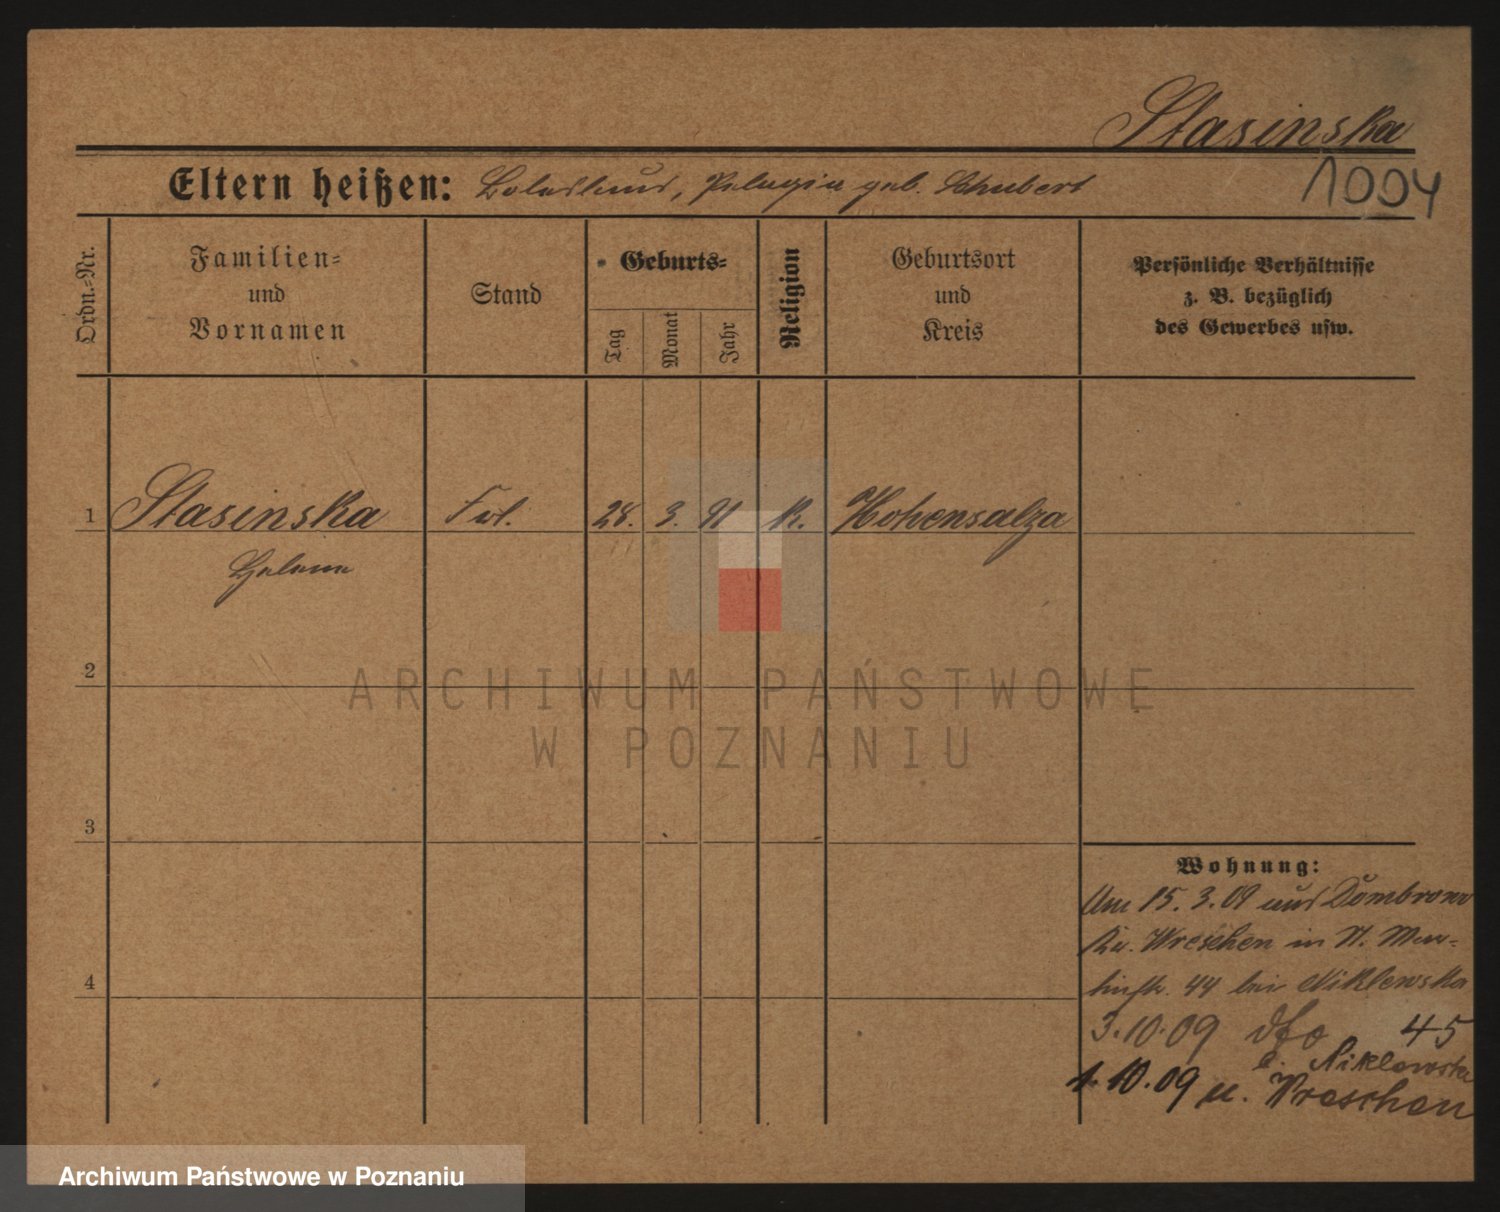 Stasinska
Eltern heißen: Boleslaus, Pelagia geb. Schubert
1004
Ordn.-Nr.
Familien-
und
Vornamen
Stand
Geburts-
Tag
Monat
Jahr
Religion
Geburtsort
und
Kreis
Persönliche Verhältnisse
z. B. bezüglich
des Gewerbes usw.
1 Stasinska Frl. 28. 3. 91 K. Hohensalza
Helene
2
ARCHIWUM PAŃSTWOWE
W POZNANIU
3
Wohnung:
Am 15. 3. 09 aus Dombrowo
Kr. Wreschen in St. Mar-
4
tinstr. 44 bei Niklewska
3.10.09 dto 45
b. Niklewska
1.10.09 n. Wreschen
Archiwum Państwowe w Poznaniu